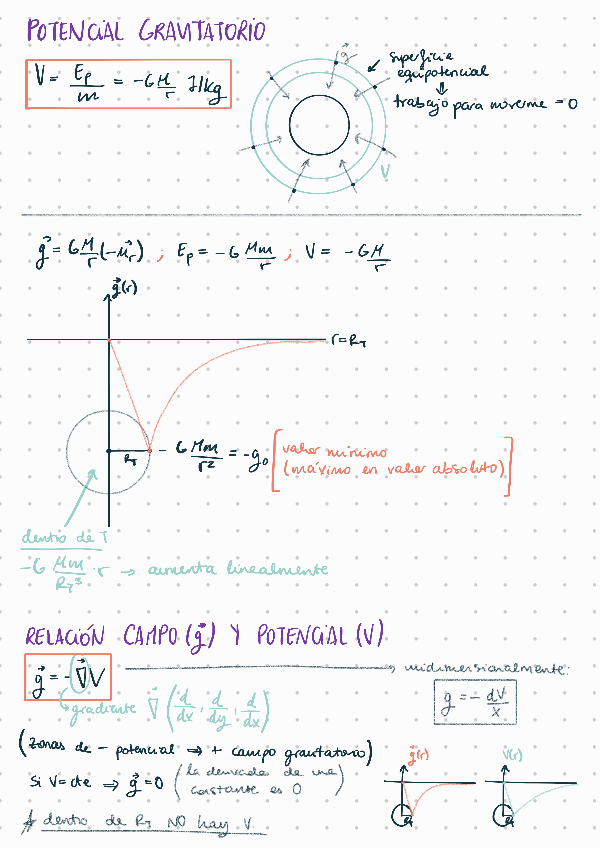 POTENCIAL GRAVITATORIO
V = Ep/m = -GM/r J/kg
g⃗
superficie
equipotencial
⇓
trabajo para moverme = 0
V
g⃗ = G M/r (-u⃗r) ; Ep = -G Mm/r ; V = -GM/r
g⃗(r)
r=R_T
R_T
- G Mm/r² = -g₀ [valor mínimo
(máximo en valor absoluto)]
dentro de T
-G Mm/R_T³ · r → aumenta linealmente
RELACIÓN CAMPO (g⃗) Y POTENCIAL (V)
g⃗ = -∇⃗V → unidimensionalmente:
gradiente ∇⃗ (d/dx, d/dy, d/dx)
g = - dV/x
(zonas de - potencial ⇒ + campo gravitatorio)
Si V=cte ⇒ g⃗=0 (la derivada de una
constante es 0)
g⃗(r)
V(r)
* dentro de R_T NO hay V.